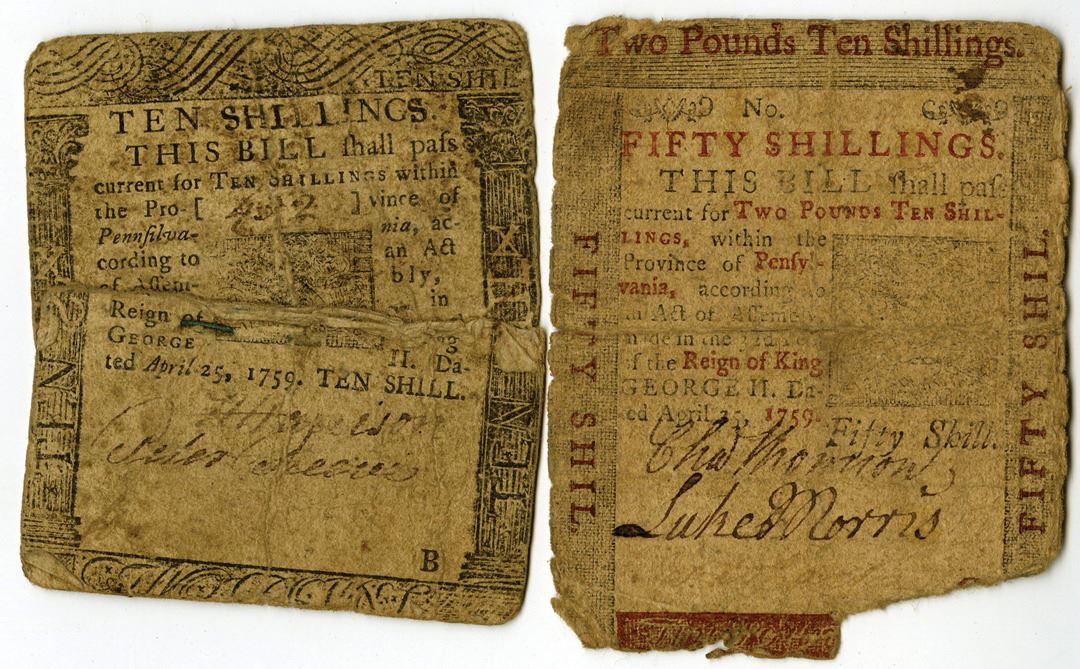 TEN SHIL
TEN SHILLINGS.
THIS BILL ſhall paſs
current for TEN SHILLINGS within
the Pro-[ ]vince of
Pennſilva- nia, ac-
cording to an Act
of Aſſem- bly,
in
Reign of
GEORGE II. Da-
ted April 25, 1759. TEN SHILL.
B
TEN
TEN
Two Pounds Ten Shillings.
No.
FIFTY SHILLINGS.
THIS BILL ſhall paſs
current for TWO POUNDS TEN SHIL-
LINGS, within the
Province of Penſyl-
vania, according to
an Act of Aſſem
made in the
of the Reign of King
GEORGE II. Da-
ted April 25, 1759.
Fifty Shill.
Luke Morris
FIFTY SHIL
FIFTY SHIL.